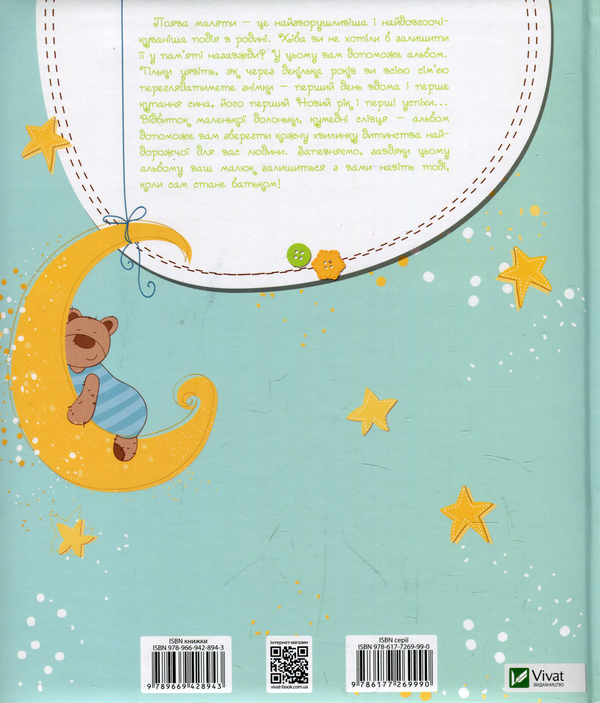 Поява маляти – це найзворушливіша і найдовгоочі-
куваніша подія в родині. Хіба ви не хотіли б залишити
її у пам'яті назавжди? У цьому вам допоможе альбом.
Тільки уявіть, як через декілька років ви всією сім'єю
переглядатимете знімки – перший день вдома і перше
купання сина, його перший Новий рік і перші успіхи...
Відбиток маленької долоньки, кумедні слівця – альбом
допоможе вам зберегти кожну хвилинку дитинства най-
дорожчої для вас людини. Запевняємо, завдяки цьому
альбому ваш малюк залишиться з вами навіть тоді,
коли сам стане батьком!
ISBN книжки
ISBN 978-966-942-894-3
9 789669 428943
інтернет-магазин
vivat-book.com.ua
ISBN серії
ISBN 978-617-7269-99-0
9 786177 269990
Vivat
ВИДАВНИЦТВО